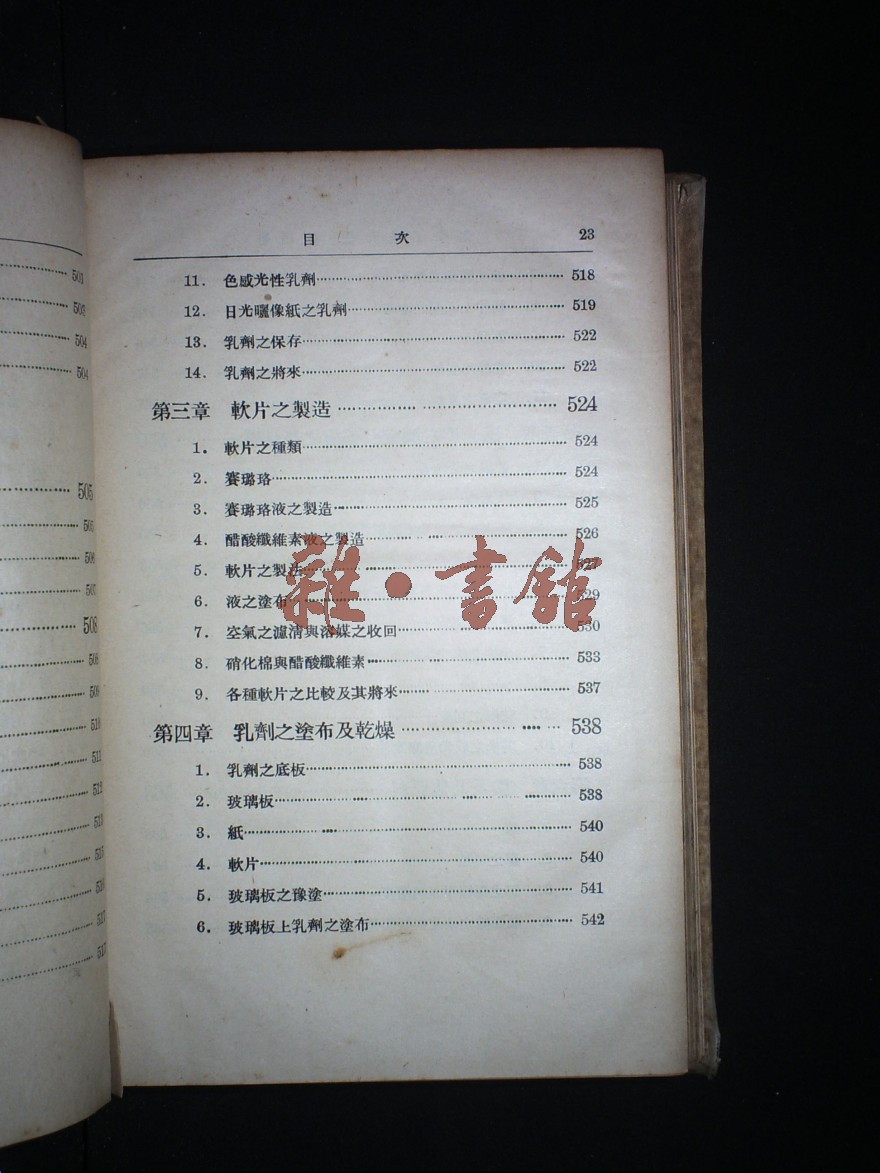 501
503
504
504
505
505
506
507
508
508
509
510
511
512
513
515
516
517
517
目 次 23
11. 色感光性乳劑 518
12. 日光曬像紙之乳劑 519
13. 乳劑之保存 522
14. 乳劑之將來 522
第三章 軟片之製造 524
1. 軟片之種類 524
2. 賽璐珞 524
3. 賽璐珞液之製造 525
4. 醋酸纖維素液之製造 526
5. 軟片之製法 527
6. 液之塗布 529
7. 空氣之濾清與溶媒之收回 530
8. 硝化棉與醋酸纖維素 533
9. 各種軟片之比較及其將來 537
第四章 乳劑之塗布及乾燥 538
1. 乳劑之底板 538
2. 玻璃板 538
3. 紙 540
4. 軟片 540
5. 玻璃板之豫塗 541
6. 玻璃板上乳劑之塗布 542
雜·書館